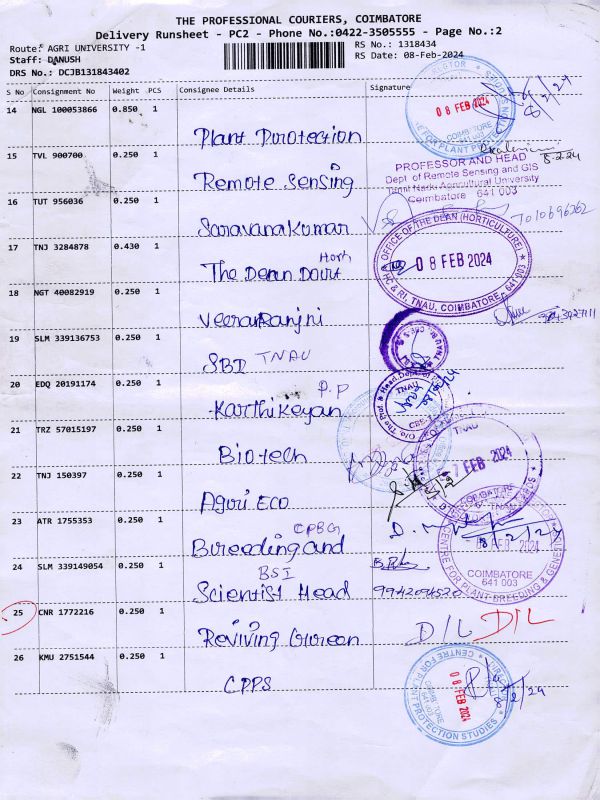 THE PROFESSIONAL COURIERS, COIMBATORE
Delivery Runsheet - PC2 - Phone No.:0422-3505555 - Page No.:2
Route: AGRI UNIVERSITY -1
RS No.: 1318434
Staff: DANUSH
RS Date: 08-Feb-2024
DRS No.: DCJB131843402
S No Consignment No Weight PCS Consignee Details Signature
14 NGL 100053866 0.850 1
Plant Protection
08 FEB 2024
COIMBATORE
15 TVL 900700 0.250 1
8-2-24
Remote Sensing
PROFESSOR AND HEAD
Dept of Remote Sensing and GIS
Tamil Nadu Agricultural University
Coimbatore 641 003
16 TUT 956036 0.250 1
Saravanakumar
17 TNJ 3284878 0.430 1
Horti
The Dean Dourt
OFFICE OF THE DEAN (HORTICULTURE)
08 FEB 2024
HC & RI, TNAU, COIMBATORE, 641 003
18 NGT 40082919 0.250 1
Veeraranjni
19 SLM 339136753 0.250 1
SBI TNAU
20 EDQ 20191174 0.250 1
P.P
Karthikeyan
TNAU
21 TRZ 57015197 0.250 1
Biotech
TNAU
7 FEB 2024
22 TNJ 150397 0.250 1
Agri.Eco
23 ATR 1755353 0.250 1
CPBG
Bureeding and
8/2/24
FEB 2024
COIMBATORE
641 003
CENTRE FOR PLANT BREEDING & GENETICS
24 SLM 339149054 0.250 1
BSI
Scientist Head
9942094520
25 CNR 1772216 0.250 1
Reviving Gureen
D/L D/L
26 KMU 2751544 0.250 1
CPPS
08 FEB 2024
CENTRE FOR PLANT PROTECTION STUDIES
8/2/24